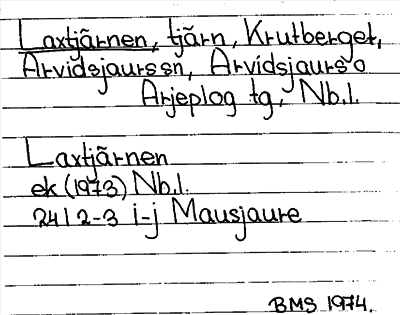 Laxtjärnen, tjärn, Krutberget,
Arvidsjaurs sn, Arvidsjaurs o
Arjeplog tg, Nb.l.
Laxtjärnen
ek (1973) Nb.l.
24I 2-3 i-j Mausjaure
BMS 1974.